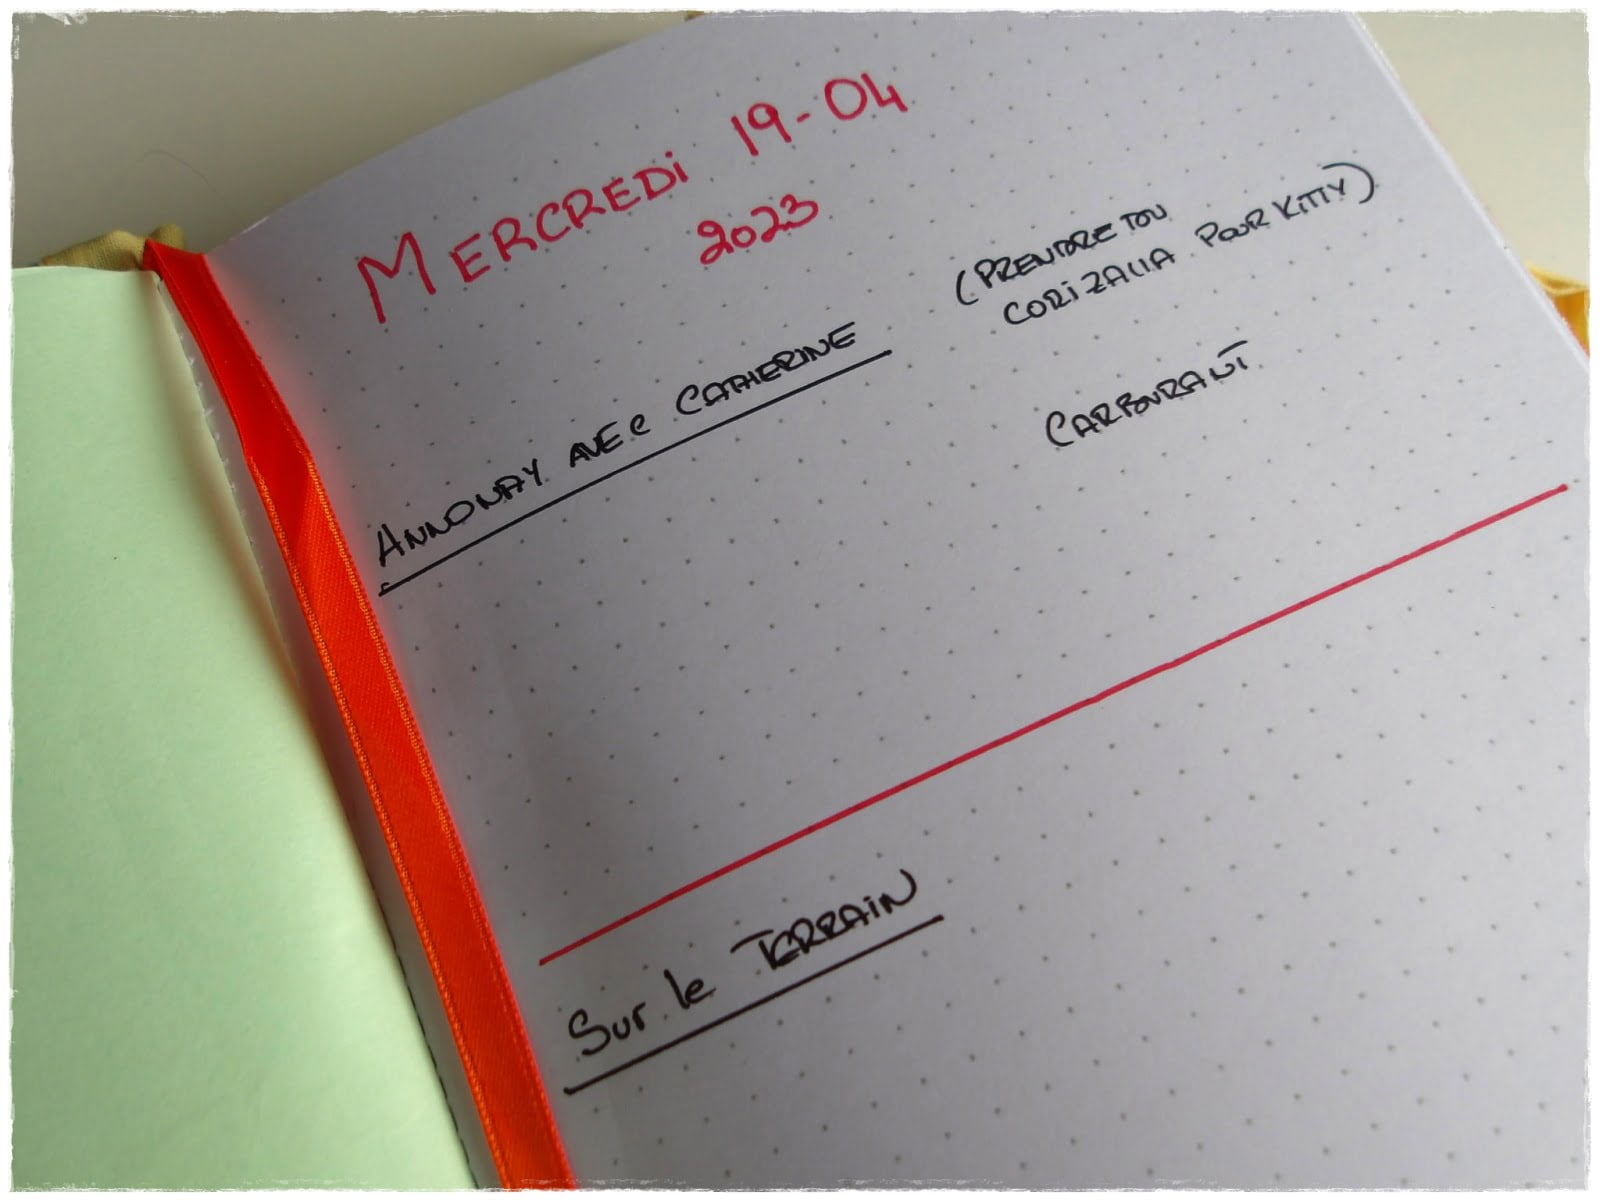 MERCREDi 19-04
2023
ANNONAY AVEC CATHERINE
(PRENDRE TON
CORiZALIA POUR KITTY)
CARBURANT
Sur le TERRAiN